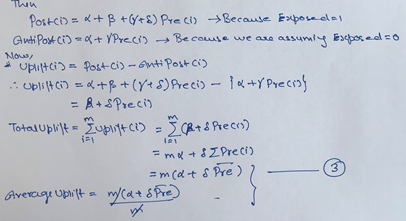 Then
Post(i) = α + β + (γ+δ) Pre(i) → Because Exposed=1
AntiPost(i) = α + γ Pre(i) → Because we are assumly Exposed=0
Now,
Uplift(i) = Post(i) - AntiPost(i)
∴ Uplift(i) = α + β + (γ+δ) Pre(i) - {α + γ Pre(i)}
= β + δ Pre(i)
Total Uplift = Σ_{i=1}^{m} Uplift(i) = Σ_{i=1}^{m} (β + δ Pre(i))
= mα + δ Σ Pre(i)
= m(α + δ P̅r̅e̅)
③
Average Uplift = m(α + δ P̅r̅e̅) / m